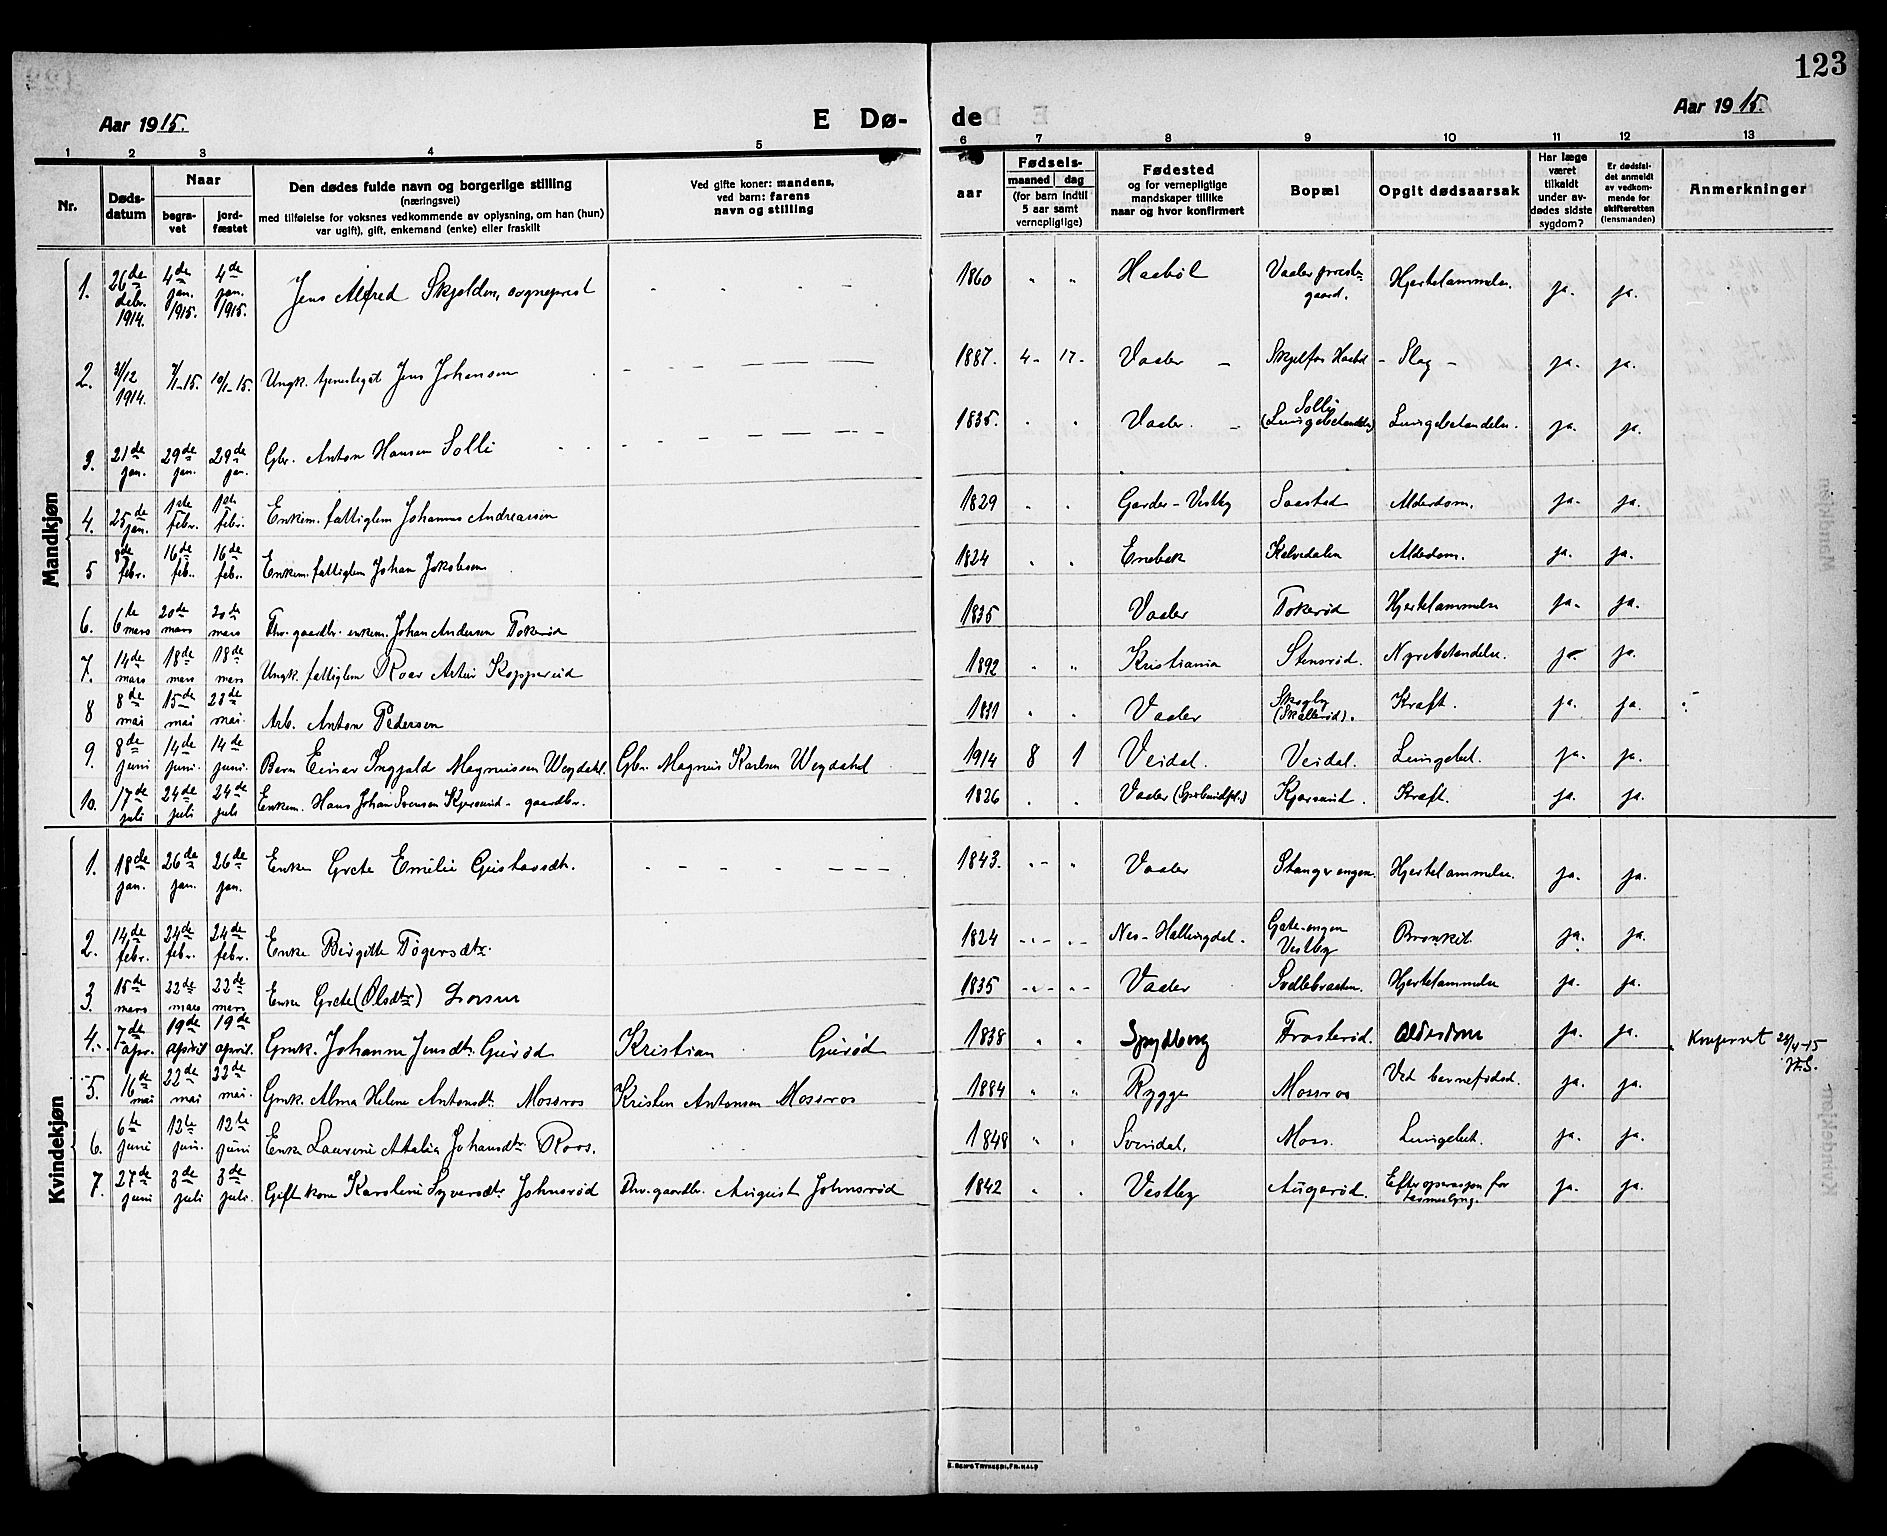 123
Aar 1915.
E Dø-
de
Aar 1915.
1 2 3 4 5 6 7 8 9 10 11 12 13
Nr.
Døds-
datum
Naar
begra-
vet
jord-
fæstet
Den dødes fulde navn og borgerlige stilling
(næringsvei)
med tilføielse for voksnes vedkommende av oplysning, om han (hun)
var ugift), gift, enkemand (enke) eller fraskilt
Ved gifte koner: mandens,
ved barn: farens
navn og stilling
Fødsels-
aar
maaned dag
(for barn indtil
5 aar samt
vernepligtige)
Fødested
og for vernepligtige
mandskaper tillike
naar og hvor konfirmert
Bopæl
Opgit dødsaarsak
Har læge
været
tilkaldt
under av-
dødes sidste
sygdom?
Er dødsfal-
det anmeldt
av vedkom-
mende for
skifteretten
(lensmanden)
Anmerkninger
Mandkjøn
1. 26de debr. 1914. 4de jan. 1915. 4de jan. 1915. Jens Alfred Skjelden, sogneprest 1860 " " Haabøl Vaaler preste-
gaard. Hjertelammelse. ja. ja.
2. 31/12 1914. 7/1-15. 10/1-15. Ungk. tjenestegut Jens Johansen 1887. 4- 17- Vaaler - Skjelfos Haabøl - Slag - ja. ja.
3. 21de jan. 29de jan. 29de jan. Gbr. Anton Hansen Solli 1835. " " Vaaler. - Solli
(Lungebetændelse) Lungebetændelse. ja. ja.
4. 25de jan. 1ste febr. 1ste febr. Enkem. fattiglem Johannes Andreassen 1829 " " Garder - Vestby Saastad Alderdom. ja. ja.
5 8de febr. 16de feb. 16de feb. Enkem. fattiglem Johan Jakobsen 1824 " " Enebak Kalvedalen Alderdom. ja. ja.
6. 6te mars 20de mars 20de mars Fhv. gaardbr. enkem. Johan Andersen Tokerød 1835 Vaaler Tokerød Hjertelammelse ja. ja.
7. 14de mars 18de mars 18de mars Ungk. fattiglem Roar Artur Kopperød 1892 " " Kristiania Stensrød. Nyrebetændelse. ja. ja.
8 8de mai 15de mai 23de mai. Arb. Anton Pedersen 1831 " " Vaaler Skogby
(Skallerød). Kræft. ja. ja.
9. 8de juni 14de juni. 14de juni. Barn Einar Ingjald Magnussen Weydahl. Gbr. Magnus Karlsen Weydahl 1914 8 1 Veidal. Veidal. Lungebet. ja. ja.
10. 17de juli 24de juli 24de juli Enkem. Hans Johan Svensen Kjærsund - gaardbr. 1826 " " Vaaler Kjærsund. Kræft. ja. ja.
Kvindekjøn
1. 18de jan. 26de jan. 26de jan. Enke Grete Emilie Gustavsdtr. 1843. " " Vaaler Stangerengen. Hjertelammelse. ja. ja.
2. 14de febr. 24de febr. 24de febr. Enke Birgitte Tøgersdtr. 1824 Nes - Hallingdal. Gate-engen
Vestby Bronkit. ja. ja.
3. 15de mars 22de mars 22de mars Enke Grete (Olsdtr) Larsen 1835 Vaaler Svellebraaten. Hjertelammelse ja. ja.
4. 7de apr. 19de april 19de april. Gmk. Johanne Jensdtr. Gurød Kristian Gurød 1838 " " Spydberg Frosterød. Alderdom ja. ja. Konfereret 28/4-15
5. 16de mai 22de mai 22de mai. Gmk. Alma Helene Antonsdtr. Mosseros Kristen Antonsen Mosseros 1884 " " Rygge Mosseros Ved barnefødsel. ja. ja.
6. 6te juni 12te juni. 12te juni Enke Laurine Atalia Johansdtr. Roos. 1848 " " Svindal. Moss. Lungebet. ja. ja.
7. 27de juni 3de juli 3de juli. Gift kone Karoline Syversdtr. Johnsrød Fhv. gaardbr. August Johnsrød 1842 " " Vestby Augerød. Efter operasjon for
tarmslyng. ja. ja.